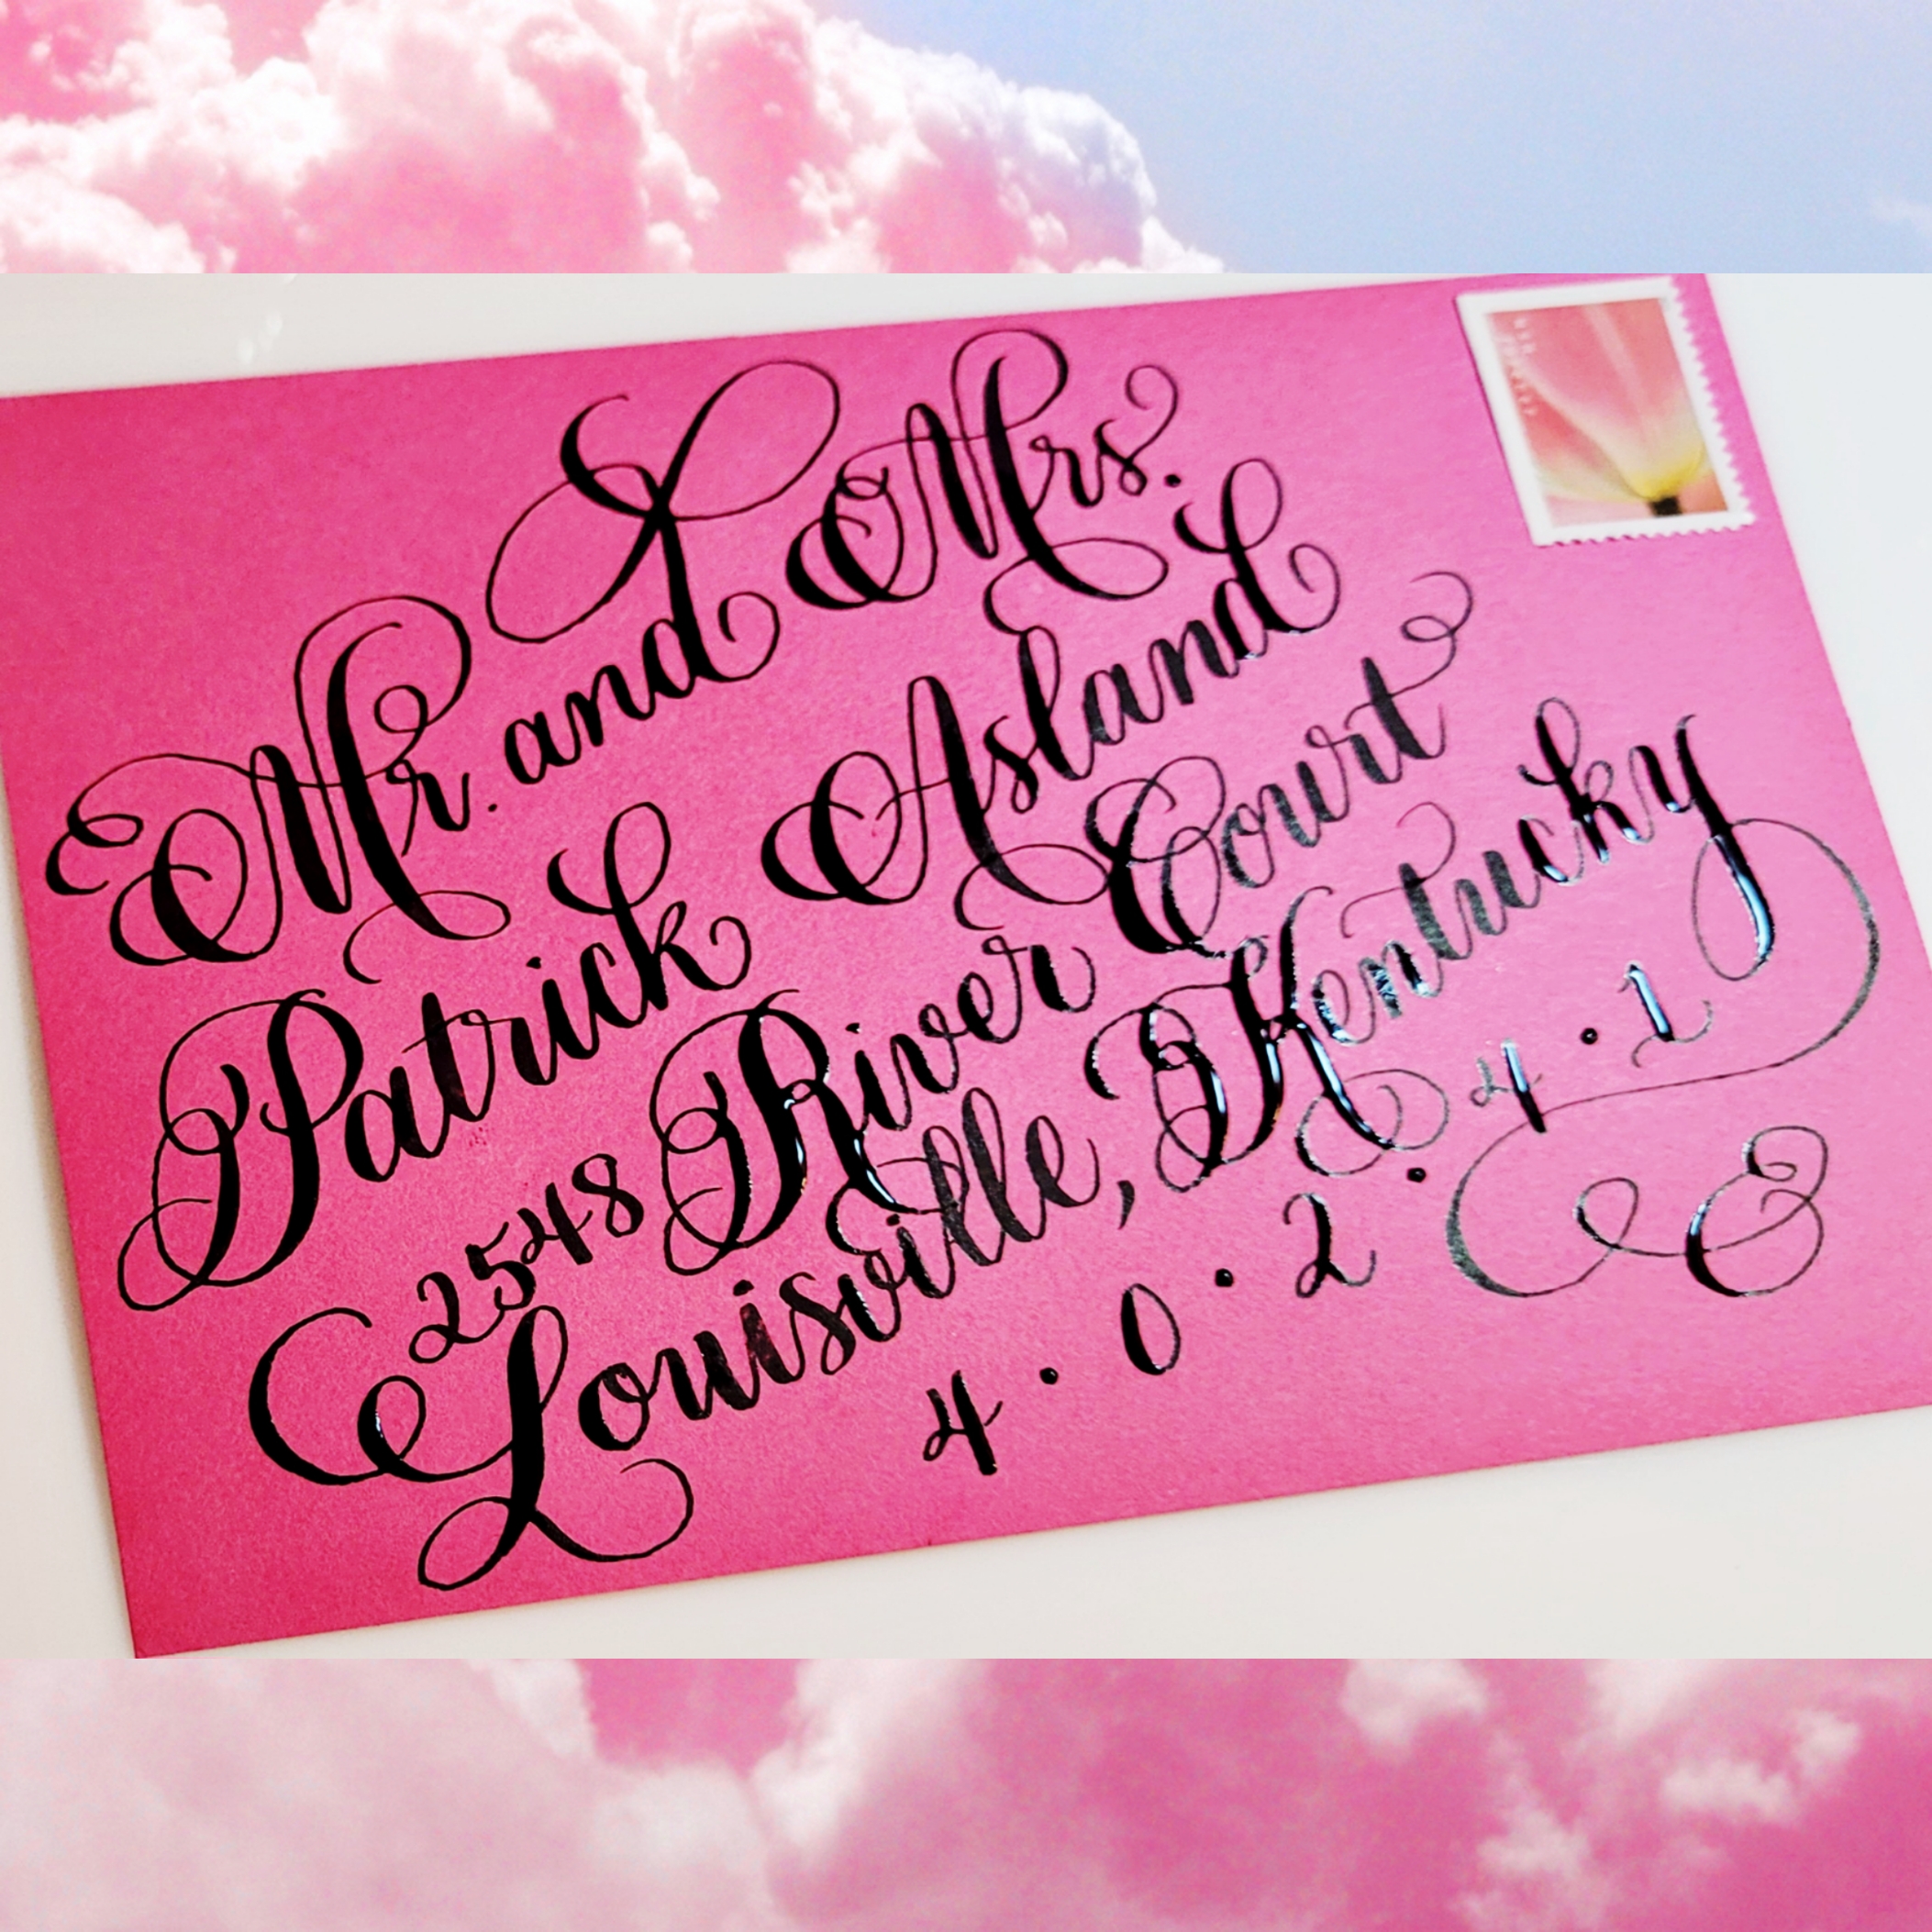 Mr. and Mrs.
Patrick Asland
2548 River Court
Louisville, Kentucky
4 · 0 · 2 · 4 · 1